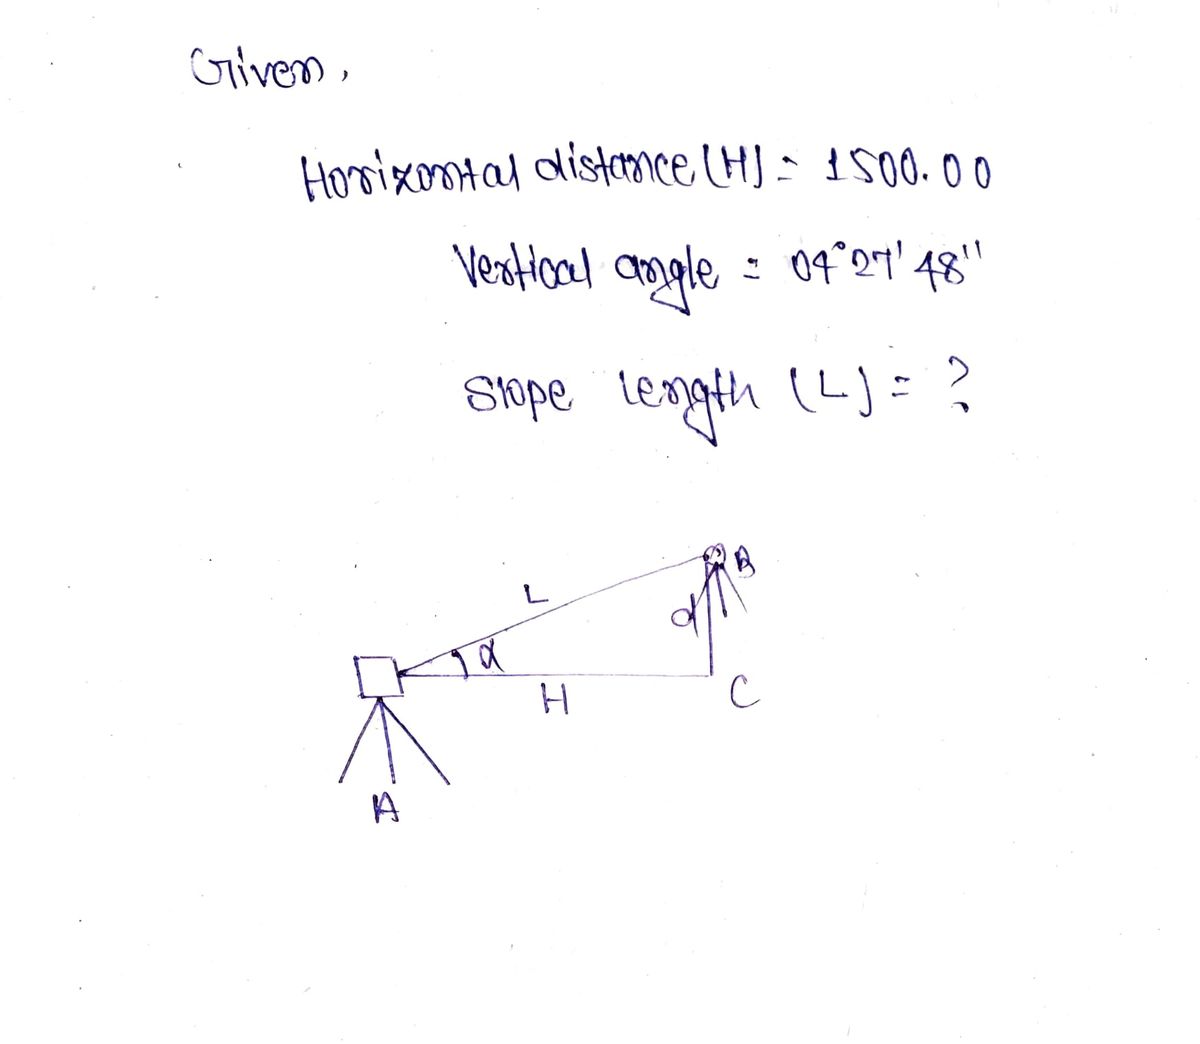 Given,
Horizontal distance (H) = 1500.00
Vertical angle = 04°27'48"
Slope length (L) = ?
B
L
d
α
H
C
A